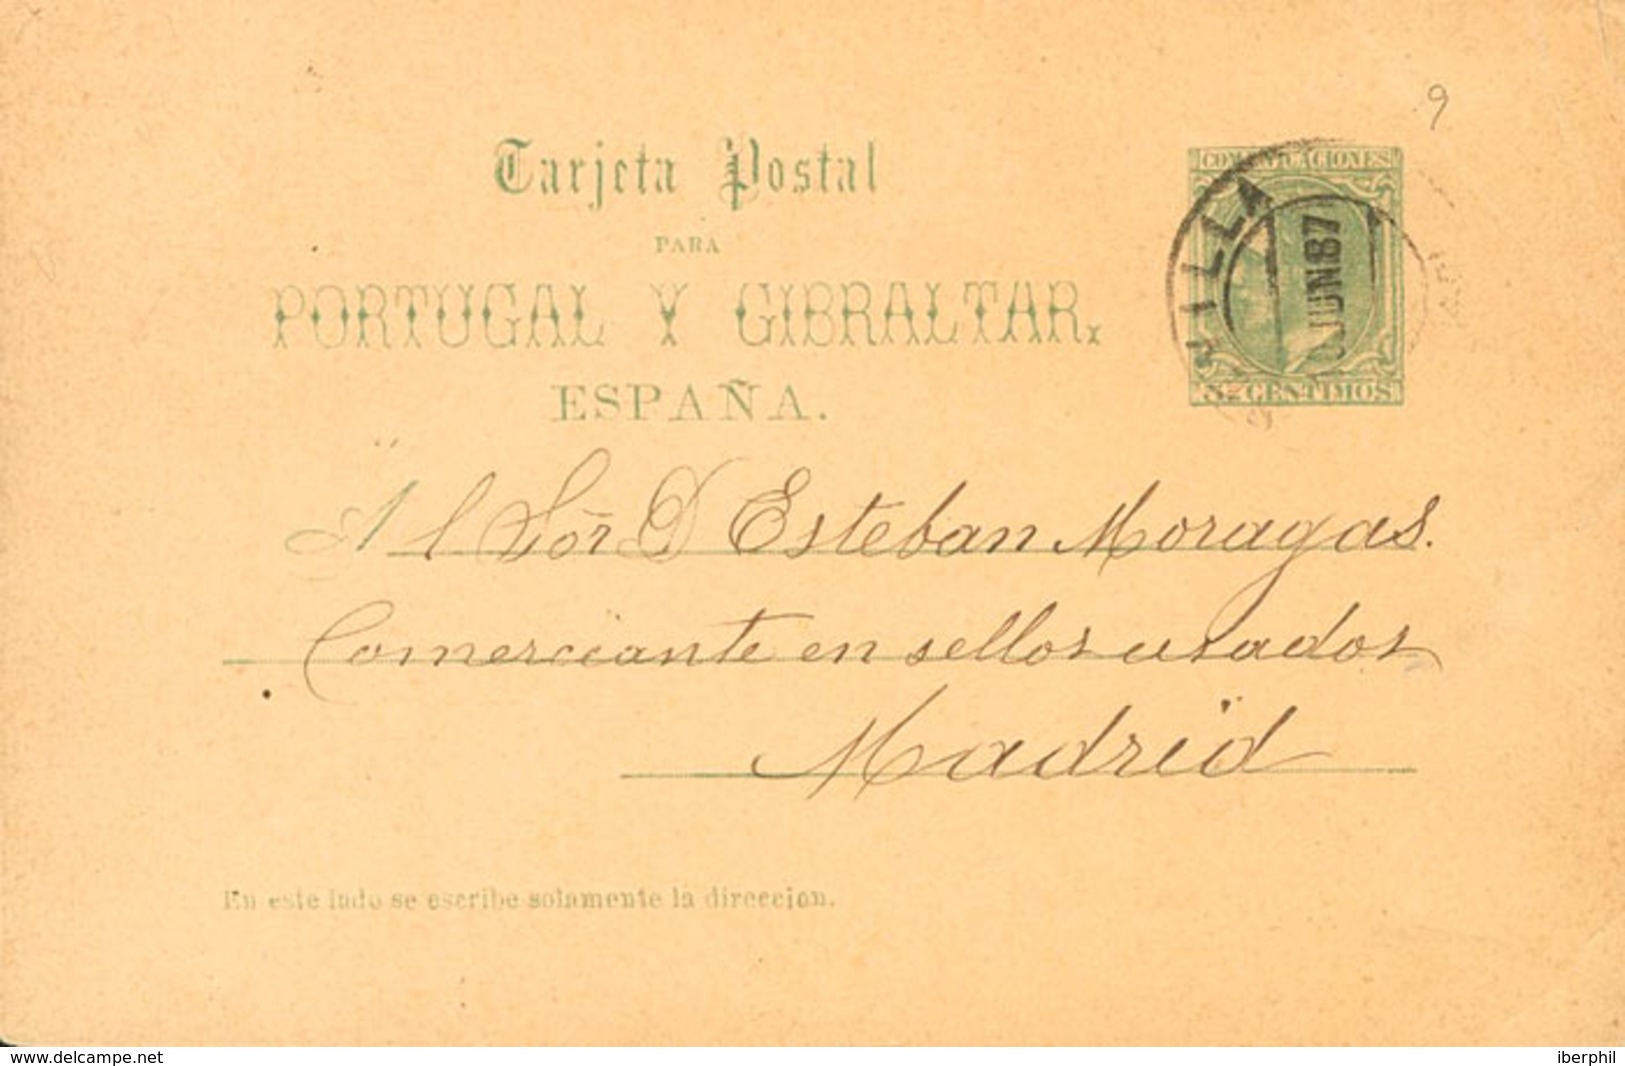 9
Tarjeta Postal
COMUNICACIONES
PARA
PORTUGAL Y GIBRALTAR.
ESPAÑA.
JUN 87
5 CENTIMOS
Al Sór D Esteban Moragas.
Comerciante en sellos usados
Madrid
En este lado se escribe solamente la direccion.
www.delcampe.net
iberphil